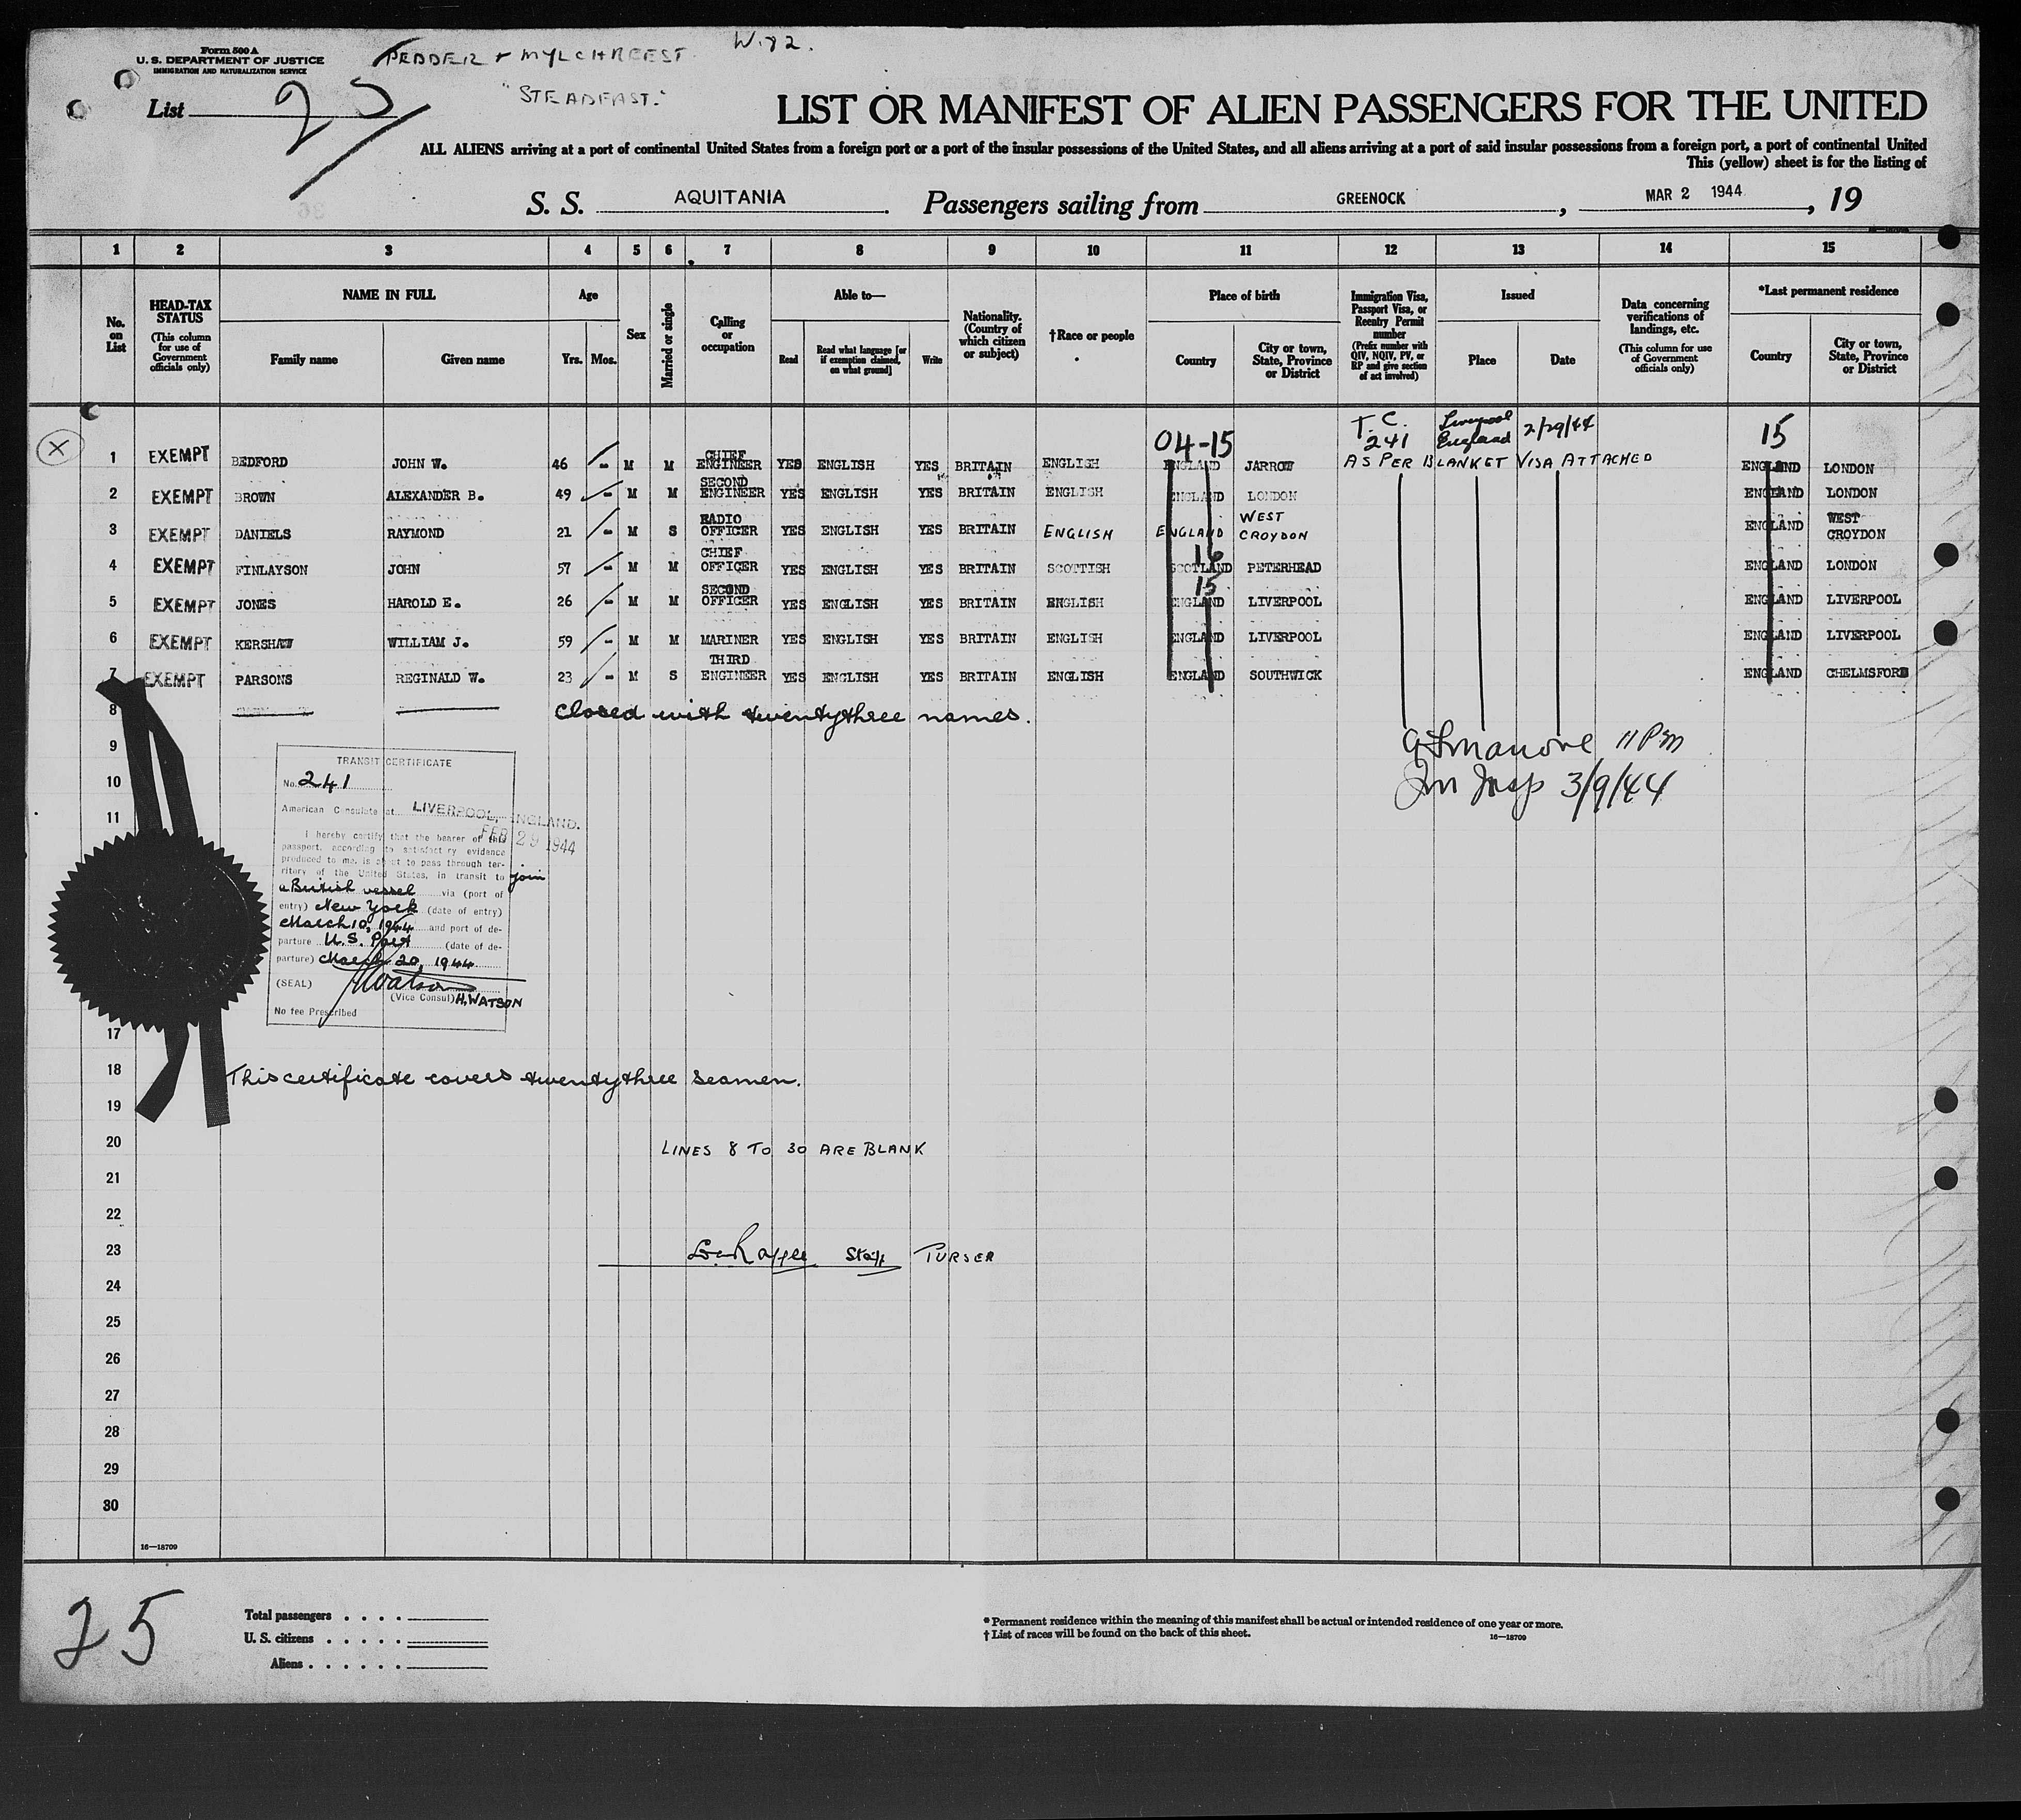 Form 500 A
U. S. DEPARTMENT OF JUSTICE
IMMIGRATION AND NATURALIZATION SERVICE
PEDDER & MYLCHREEST. W.82.
"STEADFAST."
List 25
LIST OR MANIFEST OF ALIEN PASSENGERS FOR THE UNITED
ALL ALIENS arriving at a port of continental United States from a foreign port or a port of the insular possessions of the United States, and all aliens arriving at a port of said insular possessions from a foreign port, a port of continental United
This (yellow) sheet is for the listing of
S. S. AQUITANIA. Passengers sailing from GREENOCK, MAR 2 1944, 19
1 2 3 4 5 6 7 8 9 10 11 12 13 14 15
No. on List
HEAD-TAX STATUS
(This column for use of Government officials only)
NAME IN FULL
Family name Given name
Age
Yrs. Mos.
Sex
Married or single
Calling or occupation
Able to—
Read
Read what language [or if exemption claimed, on what ground]
Write
Nationality. (Country of which citizen or subject)
†Race or people
Place of birth
Country
City or town, State, Province or District
Immigration Visa, Passport Visa, or Reentry Permit number
(Prefix number with QIV, NQIV, PV, or RP and give section of act involved)
Issued
Place Date
Data concerning verifications of landings, etc.
(This column for use of Government officials only)
*Last permanent residence
Country
City or town, State, Province or District
04-15 T. C. 241 Liverpool England 2/29/44 15
X
1 EXEMPT BEDFORD JOHN W. 46 - M M CHIEF ENGINEER YES ENGLISH YES BRITAIN ENGLISH ENGLAND JARROW AS PER BLANKET VISA ATTACHED ENGLAND LONDON
2 EXEMPT BROWN ALEXANDER B. 49 - M M SECOND ENGINEER YES ENGLISH YES BRITAIN ENGLISH ENGLAND LONDON ENGLAND LONDON
3 EXEMPT DANIELS RAYMOND 21 - M S RADIO OFFICER YES ENGLISH YES BRITAIN ENGLISH ENGLAND WEST CROYDON ENGLAND WEST CROYDON
4 EXEMPT FINLAYSON JOHN 57 - M M CHIEF OFFICER YES ENGLISH YES BRITAIN SCOTTISH 16 SCOTLAND PETERHEAD ENGLAND LONDON
5 EXEMPT JONES HAROLD E. 26 - M M SECOND OFFICER YES ENGLISH YES BRITAIN ENGLISH 15 ENGLAND LIVERPOOL ENGLAND LIVERPOOL
6 EXEMPT KERSHAW WILLIAM J. 59 - M M MARINER YES ENGLISH YES BRITAIN ENGLISH ENGLAND LIVERPOOL ENGLAND LIVERPOOL
7 EXEMPT PARSONS REGINALD W. 23 - M S THIRD ENGINEER YES ENGLISH YES BRITAIN ENGLISH ENGLAND SOUTHWICK ENGLAND CHELMSFORD
8 Closed with twentythree names.
9
11 PM
10
Im Insp 3/9/44
11
TRANSIT CERTIFICATE
No. 241
American Consulate at LIVERPOOL, ENGLAND.
FEB 29 1944
I hereby certify that the bearer of this
passport, according to satisfactory evidence
produced to me, is about to pass through ter-
ritory of the United States, in transit to join
a British vessel via (port of
entry) New York (date of entry)
March 10, 1944 and port of de-
parture U.S. Port (date of de-
parture) March 20, 1944
(SEAL) HWatson
(Vice Consul) H. WATSON
No fee Prescribed
17
18 This certificate covers twentythree seamen.
19
20 LINES 8 TO 30 ARE BLANK
21
22
23 Staff PURSER
24
25
26
27
28
29
30
16—18709
25
Total passengers . . . .
U. S. citizens . . . . .
Aliens . . . . . .
* Permanent residence within the meaning of this manifest shall be actual or intended residence of one year or more.
† List of races will be found on the back of this sheet.
16—18709